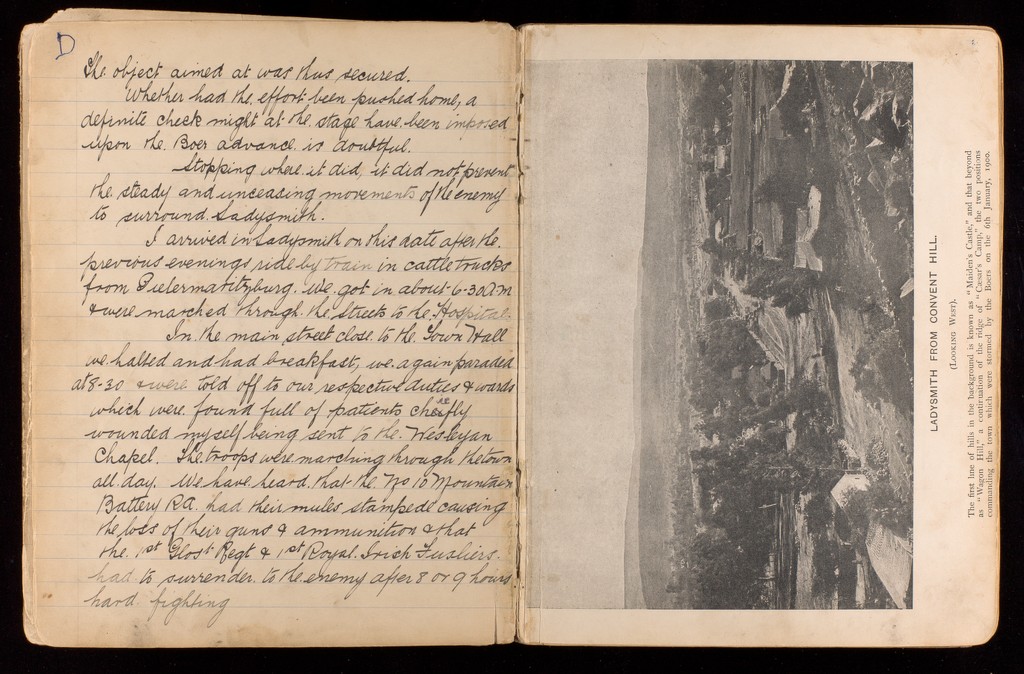 D
The object aimed at was thus secured.
Whether had the effort been pushed home, a
definite check might at the stage have been imposed
upon the Boer advance is doubtful.
Stopping where it did, it did not prevent
the steady and unceasing movements of the enemy
to surround Ladysmith.
I arrived in Ladysmith on this date after the
previous evenings ride by train in cattle trucks
from Pietermaritzburg. We got in about 6-30 A.M
& were marched through the streets to the Hospital.
In the main street close to the Town Hall
we halted and had breakfast, we again paraded
at 8-30 & were told off to our respective duties & wards
which were found full of patients cheifly
wounded myself being sent to the Wesleyan
Chapel. The troops were marching through the town
all day. We have heard that the No 10 Mountain
Battery RA had their mules stampede causing
the loss of their guns & ammunition & that
the 1st Glosr Regt & 1st Royal Irish Fusliers
had to surrender to the enemy after 8 or 9 hours
hard fighting
LADYSMITH FROM CONVENT HILL.
(LOOKING WEST).
The first line of hills in the background is known as "Maiden's Castle," and that beyond
as "Wagon Hill," a continuation of the ridge of "Cæsar's Camp," the two positions
commanding the town which were stormed by the Boers on the 6th January, 1900.